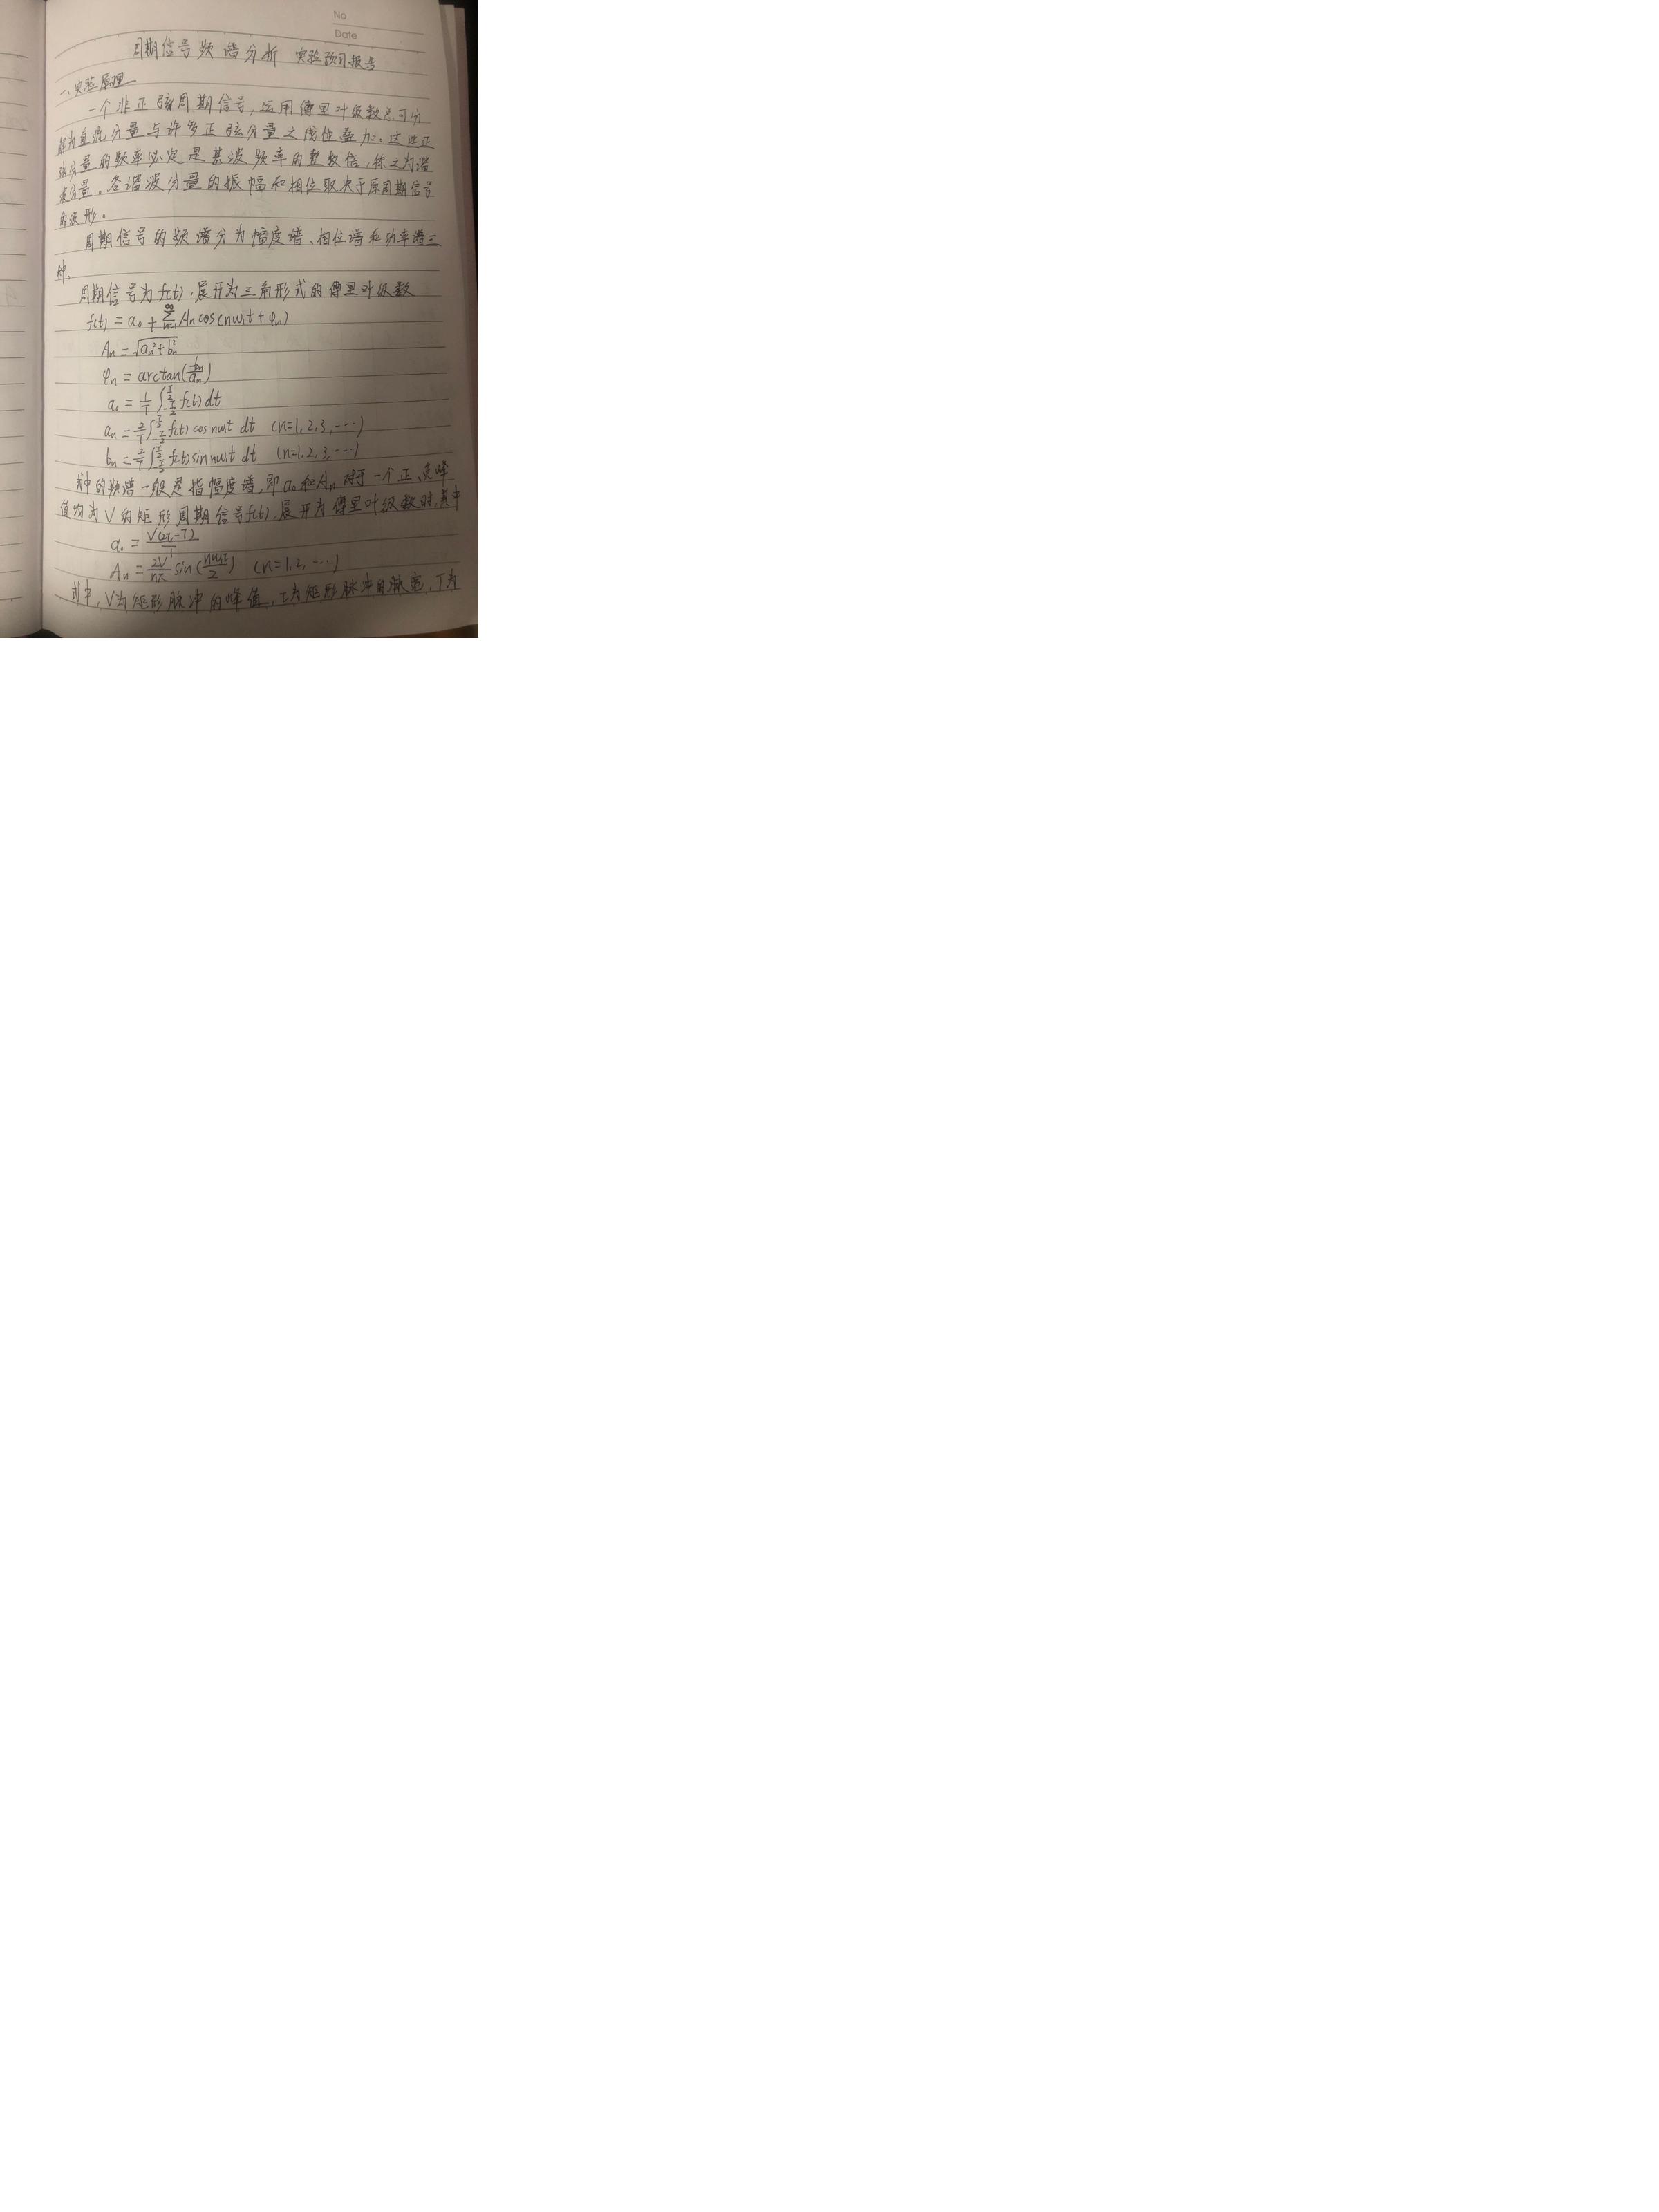 No.
Date
周期信号频谱分析 实验预习报告
一、实验原理
一个非正弦周期信号,运用傅里叶级数总可分
解为直流分量与许多正弦分量之线性叠加。这些正
弦分量的频率必定是基波频率的整数倍,称之为谐
波分量。各谐波分量的振幅和相位取决于原周期信号
的波形。
周期信号的频谱分为幅度谱、相位谱和功率谱三
种。
周期信号为f(t),展开为三角形式的傅里叶级数
f(t) = a₀ + ∑_{n=1}^{∞} Aₙcos(nω₁t + φₙ)
Aₙ = √(aₙ²+bₙ²)
φₙ = arctan(bₙ/aₙ)
a₀ = 1/T ∫_{-T/2}^{T/2} f(t) dt
aₙ = 2/T ∫_{-T/2}^{T/2} f(t) cos nω₁t dt (n=1,2,3,…)
bₙ = 2/T ∫_{-T/2}^{T/2} f(t) sin nω₁t dt (n=1,2,3,…)
式中的频谱一般是指幅度谱,即a₀和Aₙ 对于一个正、负峰
值均为V的矩形周期信号f(t),展开为傅里叶级数时,其中
a₀ = V(2τ-T)/T
Aₙ = 2V/nπ sin(nω₁τ/2) (n=1,2,…)
式中,V为矩形脉冲的峰值,τ为矩形脉冲的脉宽,T为